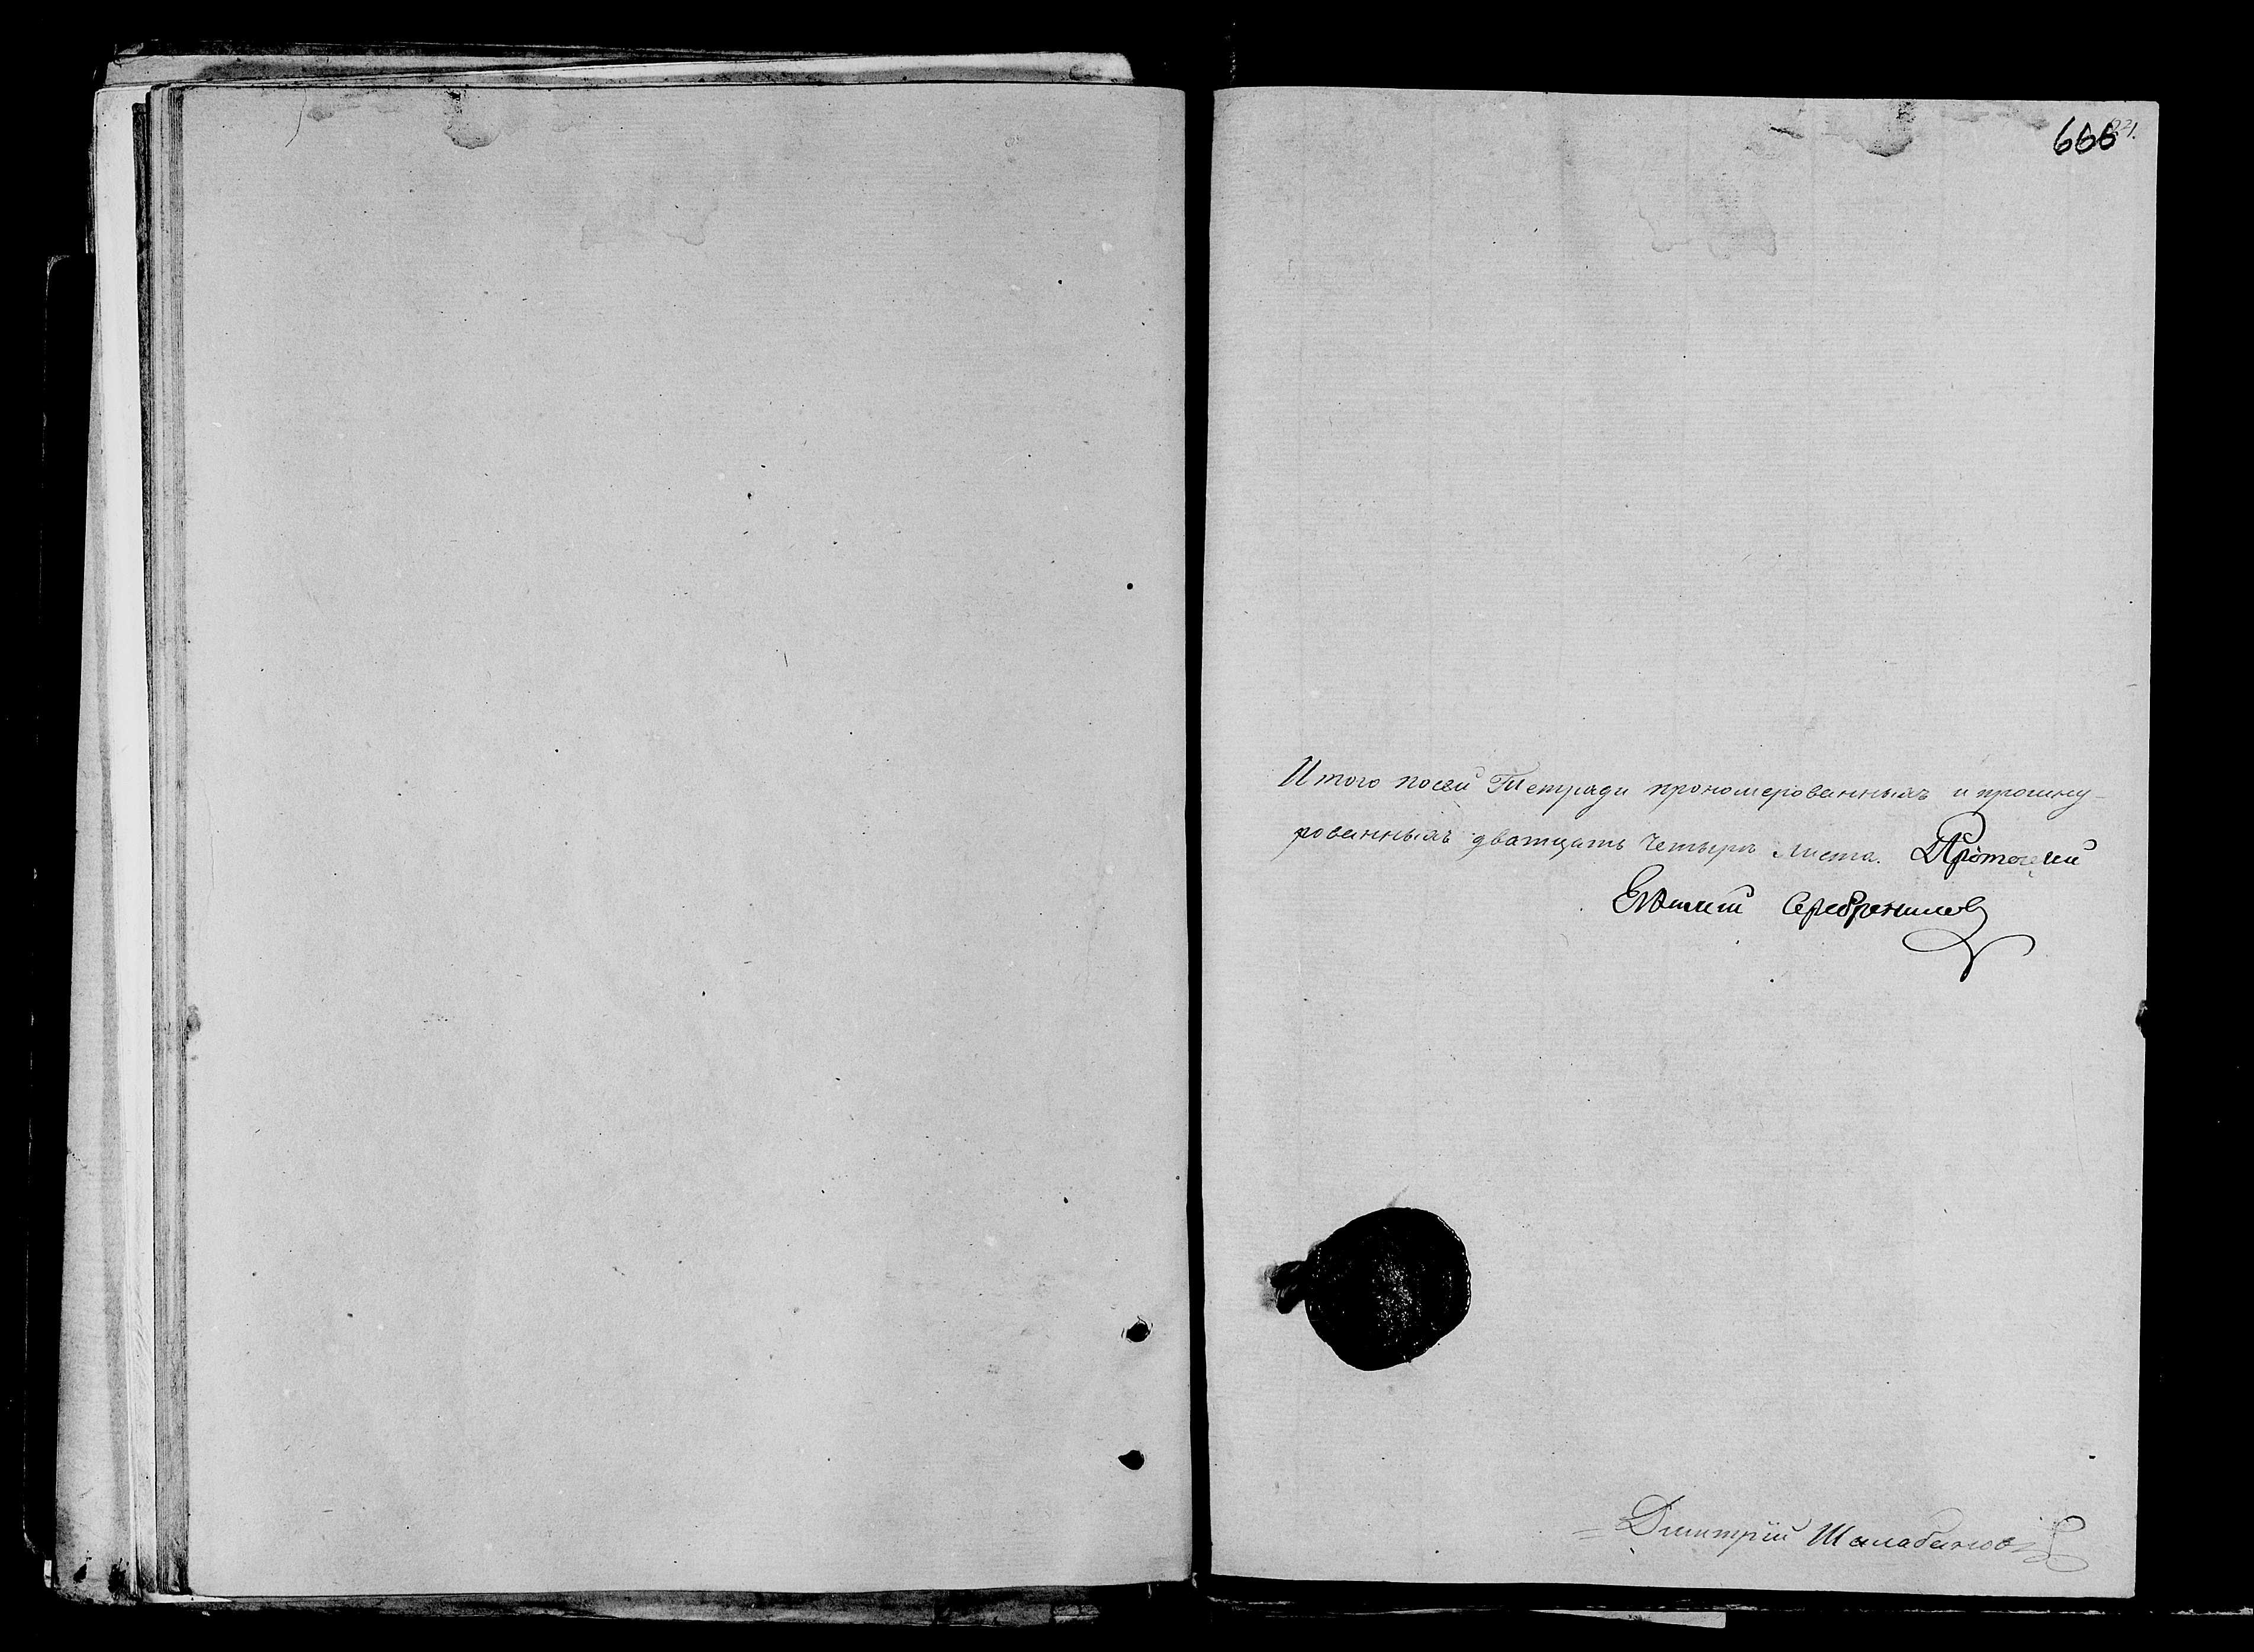 666 24.
Итого посей Тетради прономерованныхъ и прошну-
рованныхъ дватцать четыре листа. Протоіерей
Евѳимій Серебрениковъ
Димитрій Шалабановъ